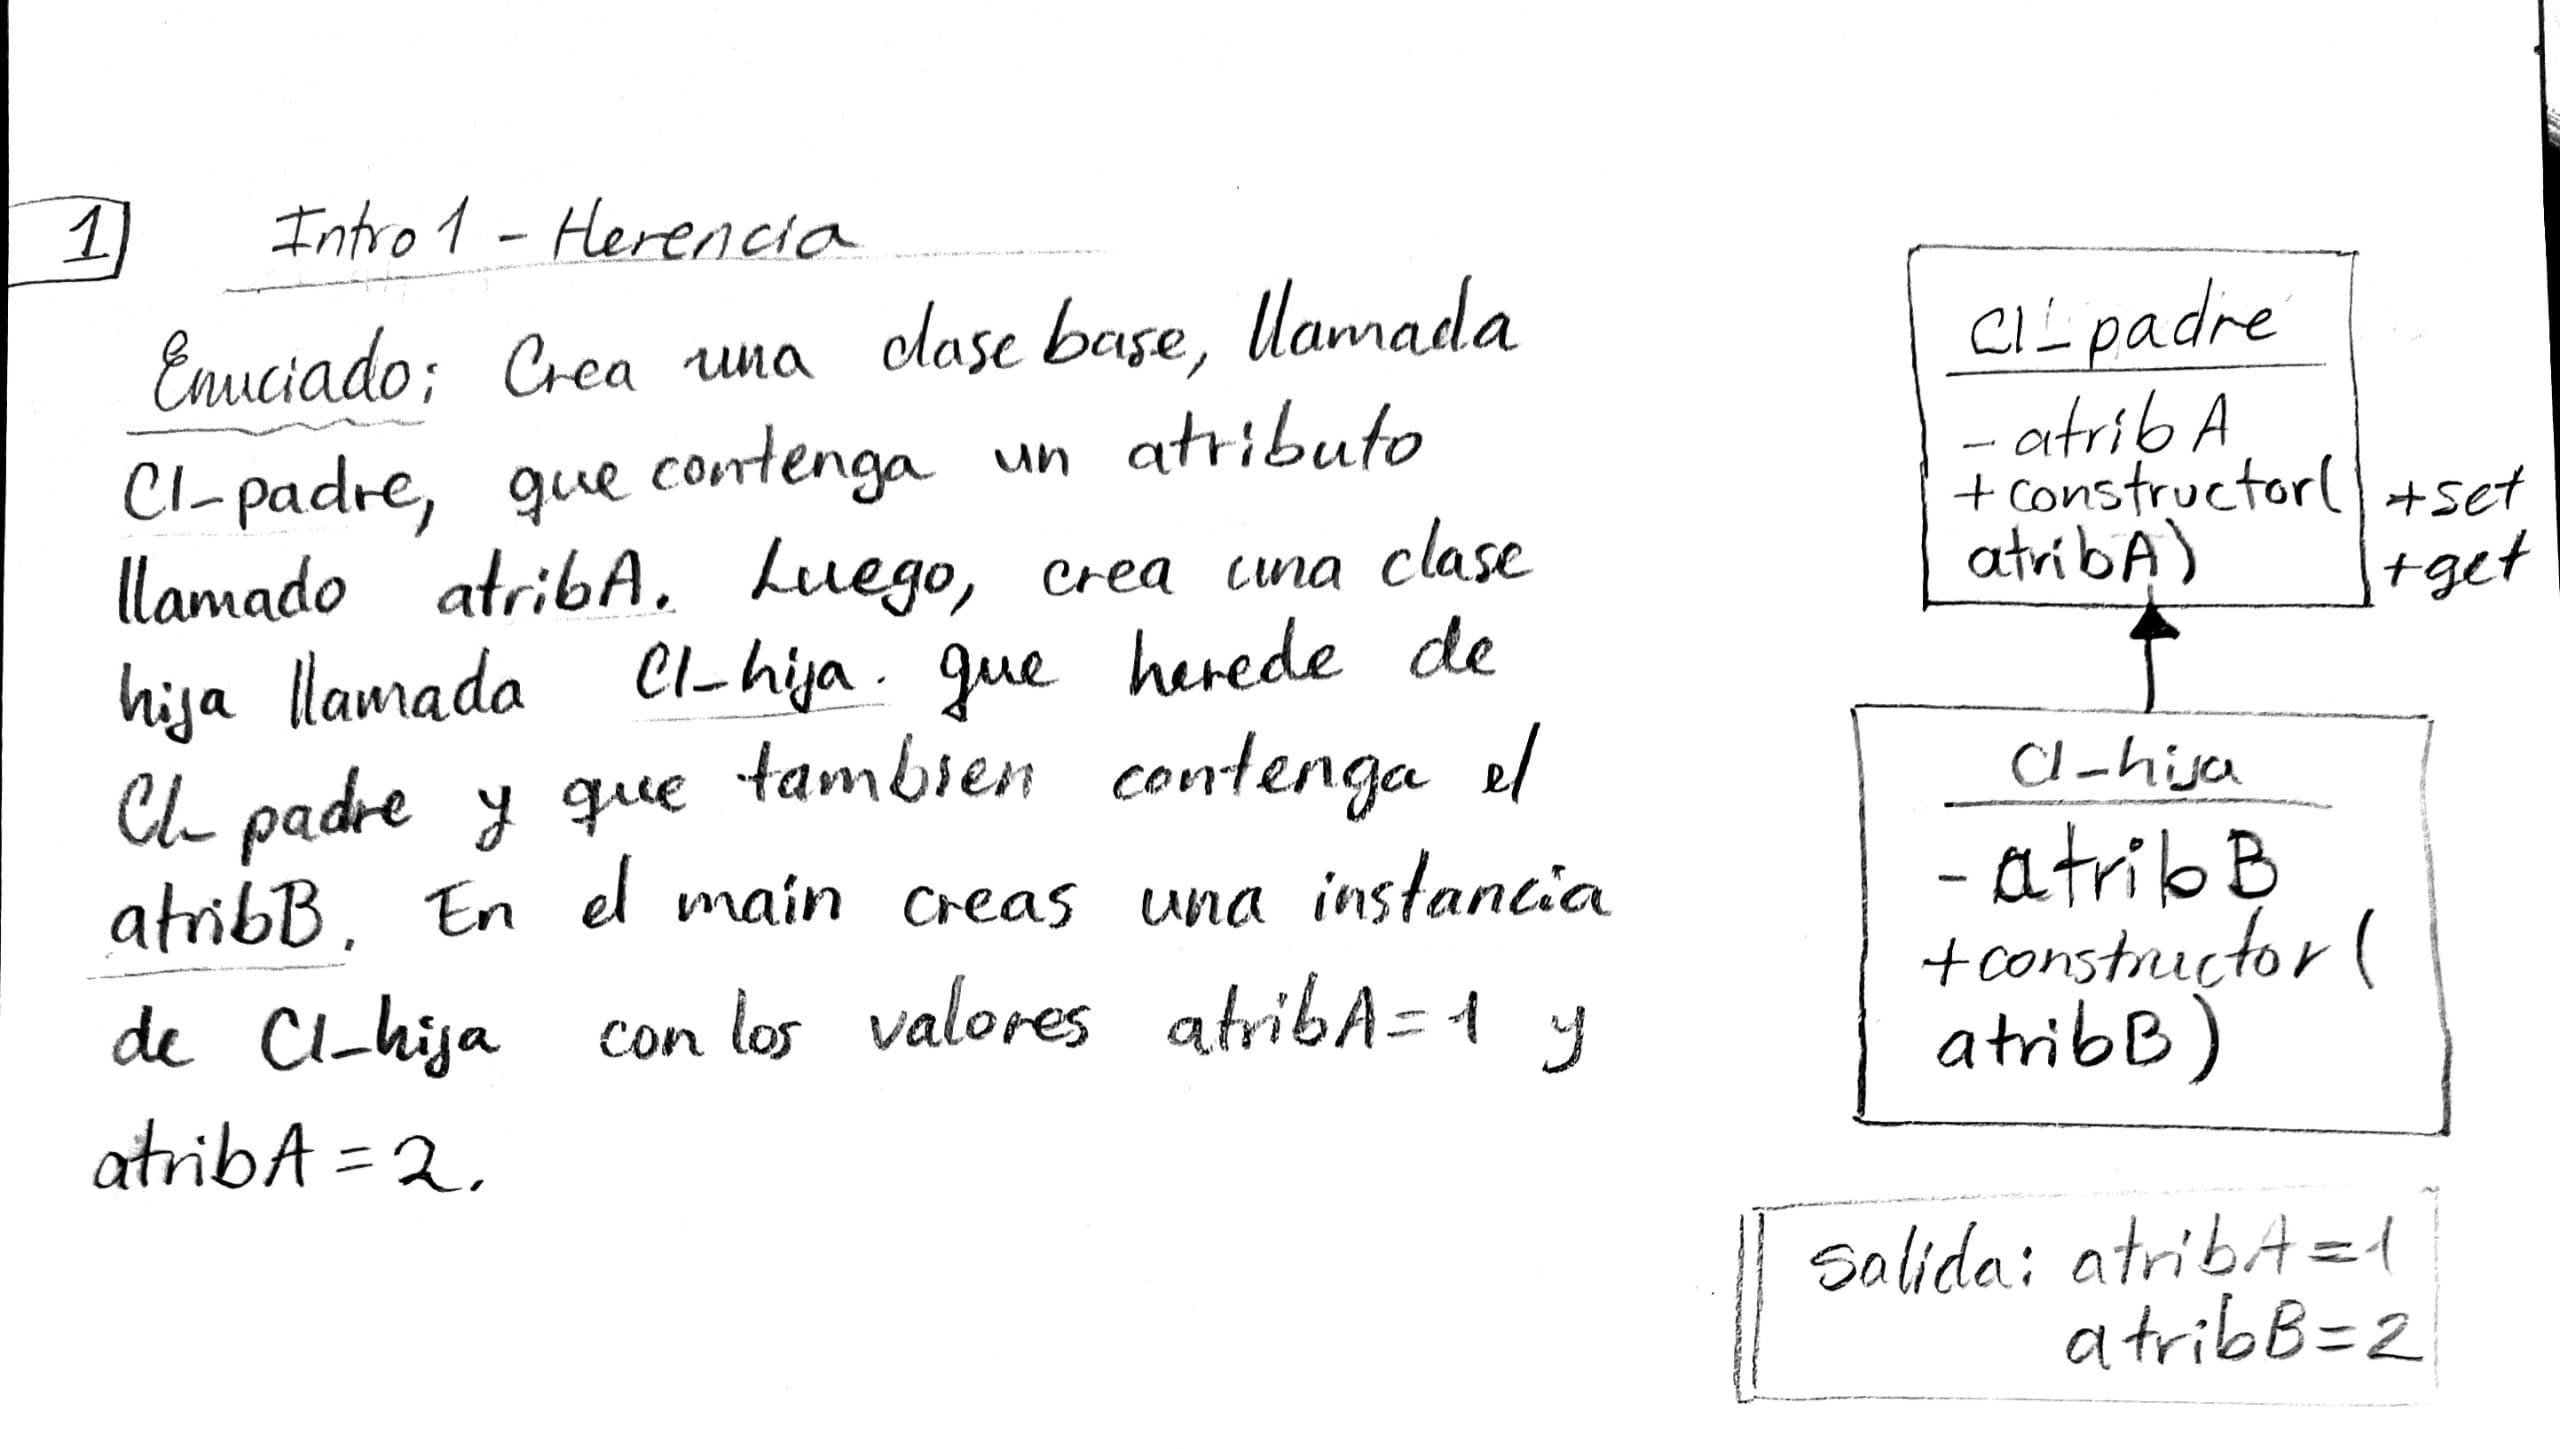 1 Intro 1 - Herencia
Enuciado: Crea una clase base, llamada
Cl_padre, que contenga un atributo
llamado atribA. Luego, crea una clase
hija llamada Cl_hija. que herede de
Cl_padre y que tambien contenga el
atribB. En el main creas una instancia
de Cl_hija con los valores atribA=1 y
atribA=2.
Cl_padre
- atribA
+ constructor(
atribA)
+set
+get
Cl_hija
- atribB
+constructor(
atribB)
Salida: atribA=1
atribB=2